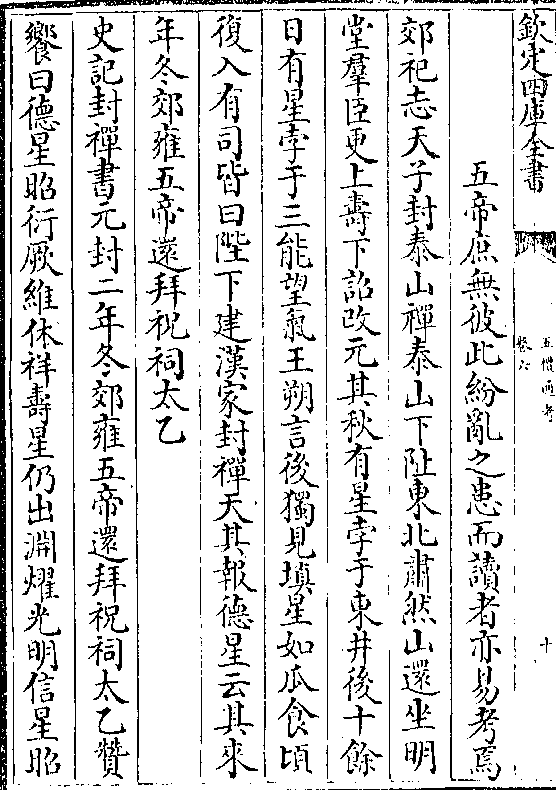 欽定四庫全書
五禮通考
卷六
十
五帝庶無彼此紛亂之患而讀者亦易考焉
郊祀志天子封泰山禪泰山下阯東北肅然山還坐明
堂羣臣更上壽下詔改元其秋有星孛于東井後十餘
日有星孛于三能望氣王朔言後獨見填星如瓜食頃
復入有司皆曰陛下建漢家封禪天其報德星云其來
年冬郊雍五帝還拜祝祠太乙
史記封禪書元封二年冬郊雍五帝還拜祝祠太乙贊
饗曰德星昭衍厥維休祥壽星仍出淵耀光明信星昭